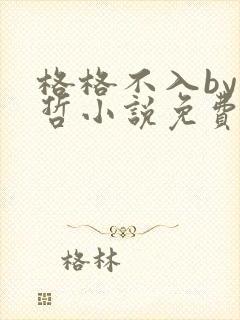 格格不入by
哲小說免費
格林